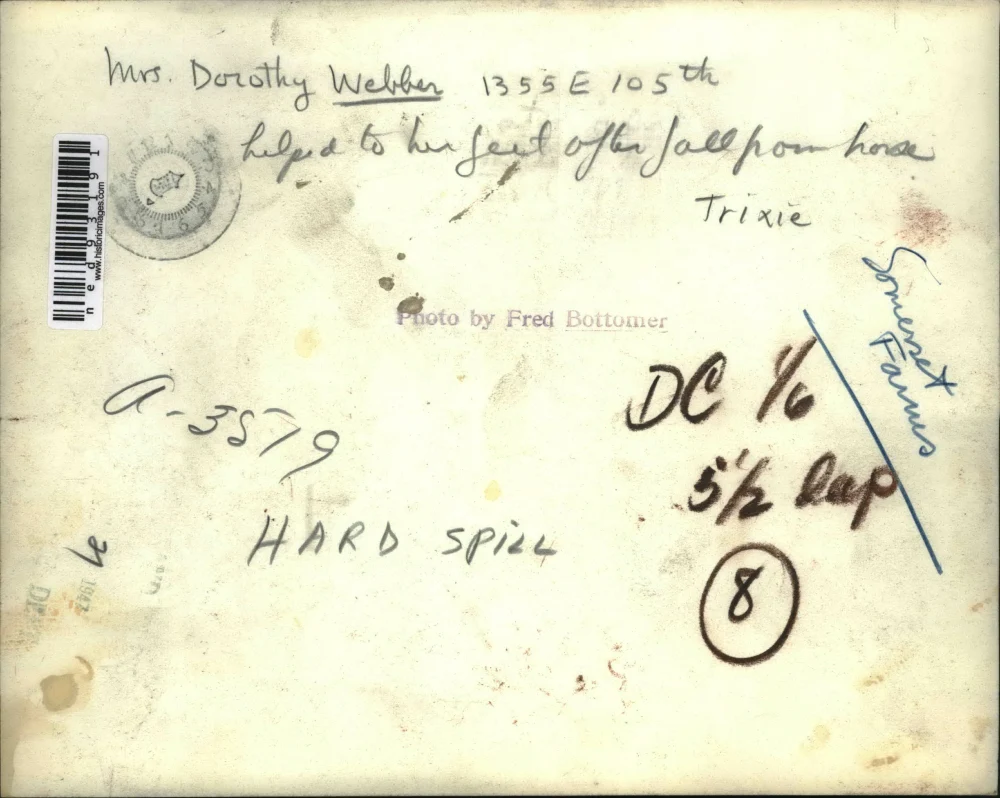 Mrs. Dorothy Webber 1355 E 105th
helped to her feet after fall from horse
Trixie
ned93191
www.historicimages.com
Photo by Fred Bottomer
Somerset
Farms
a-3579
DC 1/6
5 1/2 lap
HARD SPILL
8
1942